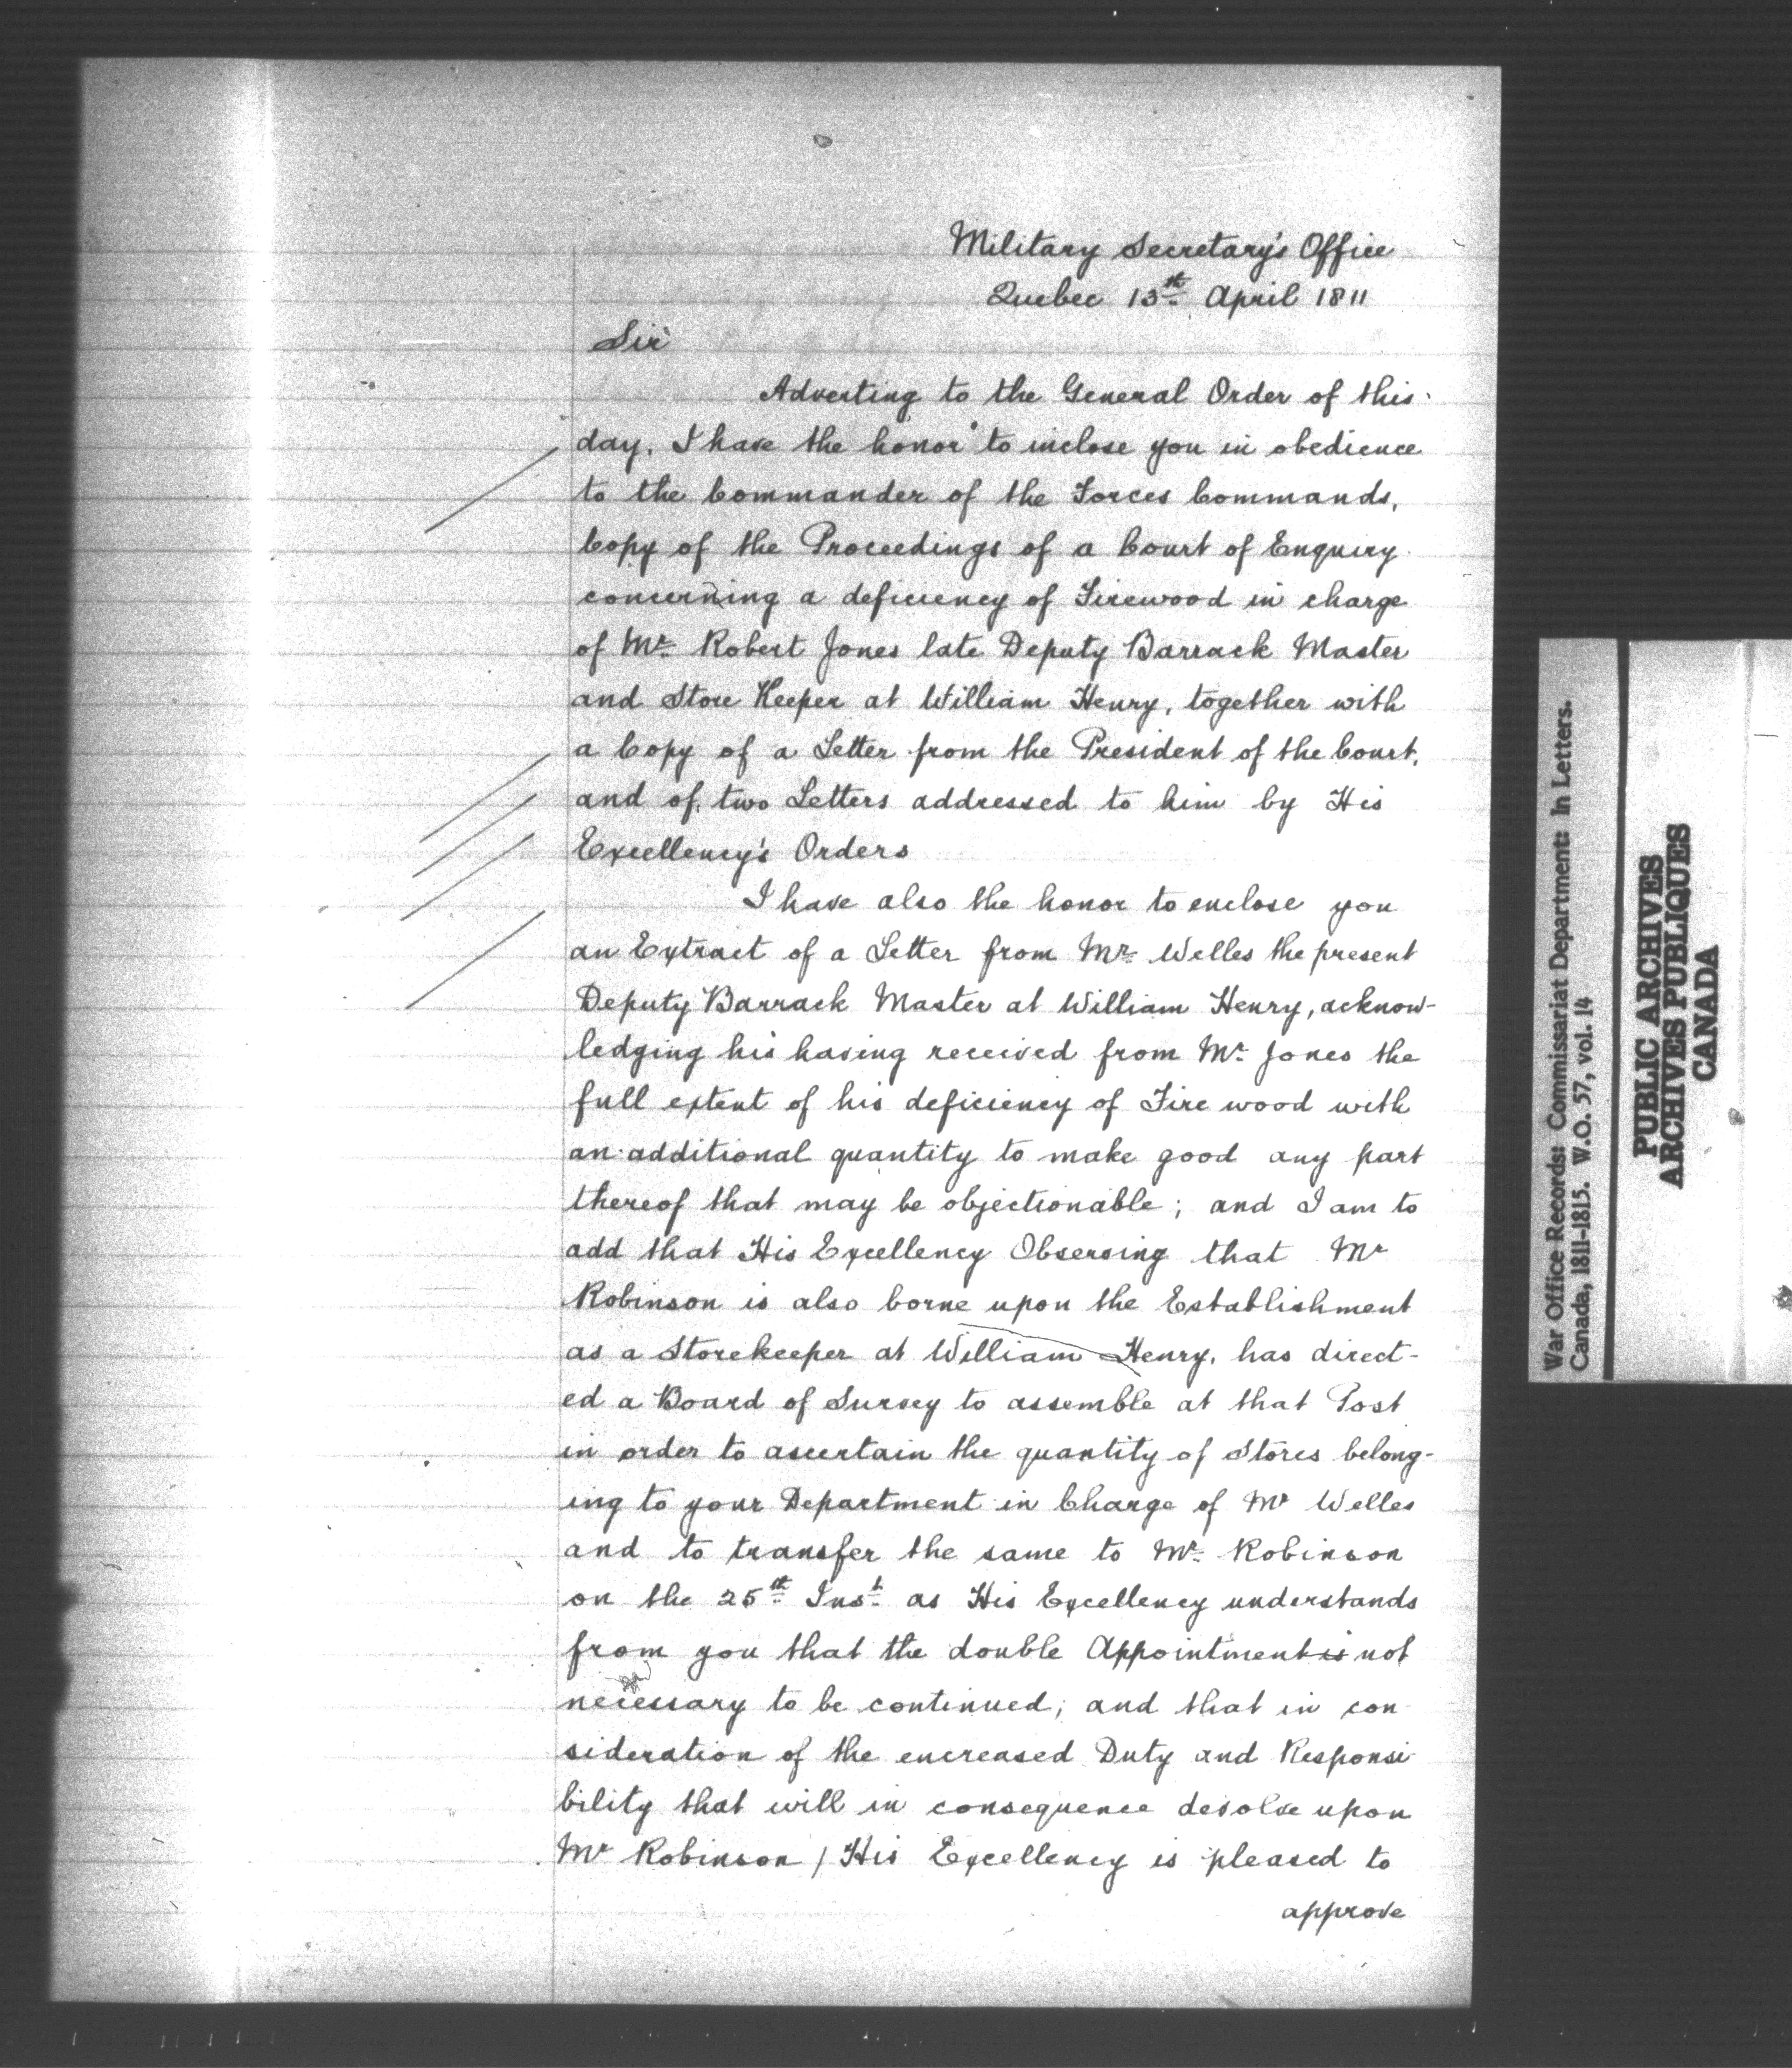 Military Secretary's Office
Quebec 13th April 1811
Sir
Adverting to the General Order of this
day, I have the honor to inclose you in obedience
to the Commander of the Forces Commands,
Copy of the Proceedings of a Court of Enquiry
concerning a deficiency of Firewood in charge
of Mr Robert Jones late Deputy Barrack Master
and Store Keeper at William Henry, together with
a Copy of a Letter from the President of the Court,
and of two Letters addressed to him by His
Excellency's Orders
I have also the honor to enclose you
an Extract of a Letter from Mr Welles the present
Deputy Barrack Master at William Henry, acknow-
ledging his having received from Mr Jones the
full extent of his deficiency of Fire wood with
an additional quantity to make good any part
thereof that may be objectionable; and I am to
add that His Excellency Observing that Mr
Robinson is also borne upon the Establishment
as a Storekeeper at William Henry, has direct-
ed a Board of Survey to assemble at that Post
in order to ascertain the quantity of Stores belong-
ing to your Department in Charge of Mr Welles
and to transfer the same to Mr Robinson
on the 25th Inst as His Excellency understands
from you that the double Appointment is not
necessary to be continued; and that in con
sideration of the encreased Duty and Responsi
bility that will in consequence devolve upon
Mr Robinson / His Excellency is pleased to
approve
War Office Records: Commissariat Department: In Letters.
Canada, 1811-1815. W.O. 57, vol. 14
PUBLIC ARCHIVES
ARCHIVES PUBLIQUES
CANADA